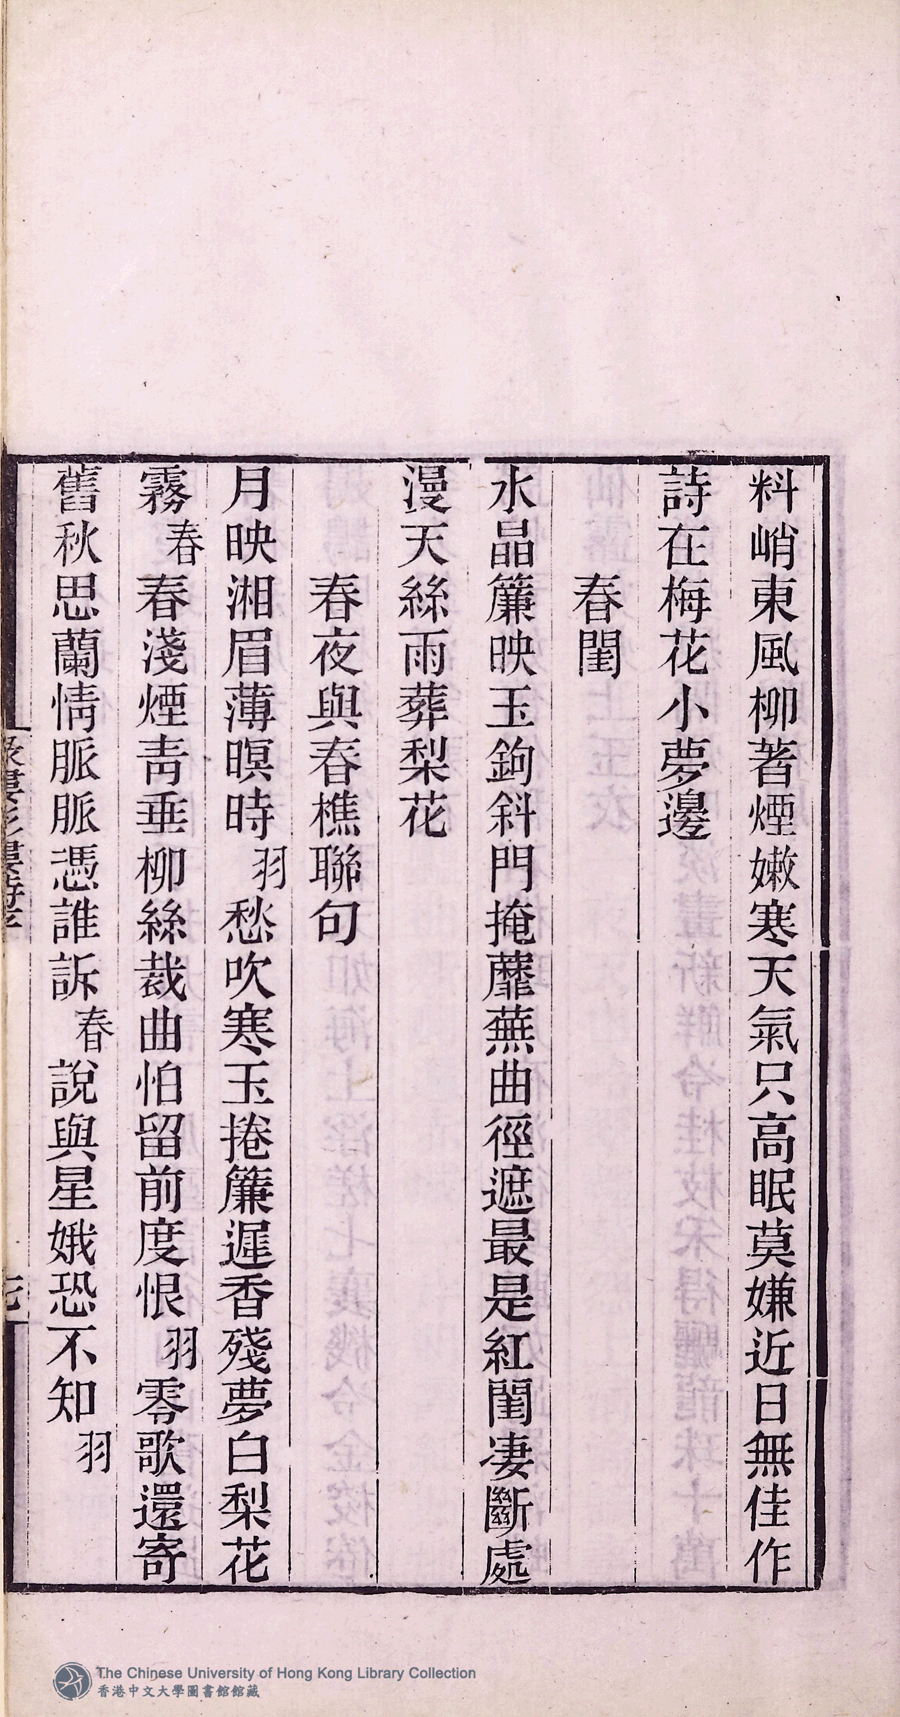 料峭東風柳著煙嫩寒天氣只高眠莫嫌近日無佳作
詩在梅花小夢邊
春閨
水晶簾映玉鉤斜門掩蘼蕪曲徑遮最是紅閨凄斷處
漫天絲雨葬梨花
春夜與春樵聯句
月映湘眉薄暝時羽愁吹寒玉捲簾遲香殘夢白梨花
霧春春淺煙青垂柳絲裁曲怕留前度恨羽零歌還寄
舊秋思蘭情脈脈憑誰訴春說與星娥恐不知羽
The Chinese University of Hong Kong Library Collection
香港中文大學圖書館館藏